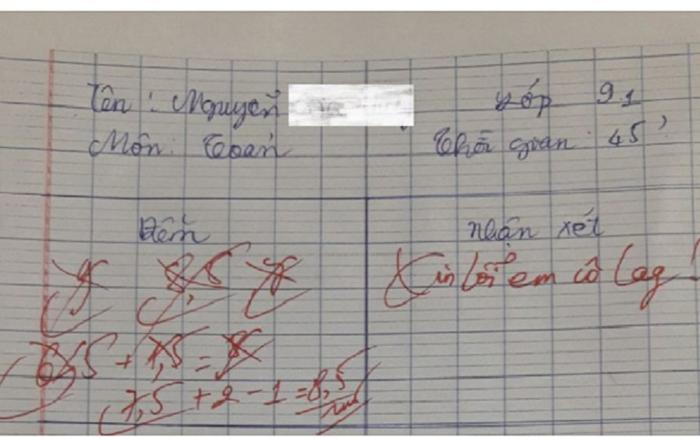 Tên : Nguyễn
Lớp 9.1
Môn : Toán
Thời gian : 45'
Điểm
Nhận xét
8,5
Xin lỗi em cô lag !
6,5 + 1,5 = 8
7,5 + 2 - 1 = 8,5